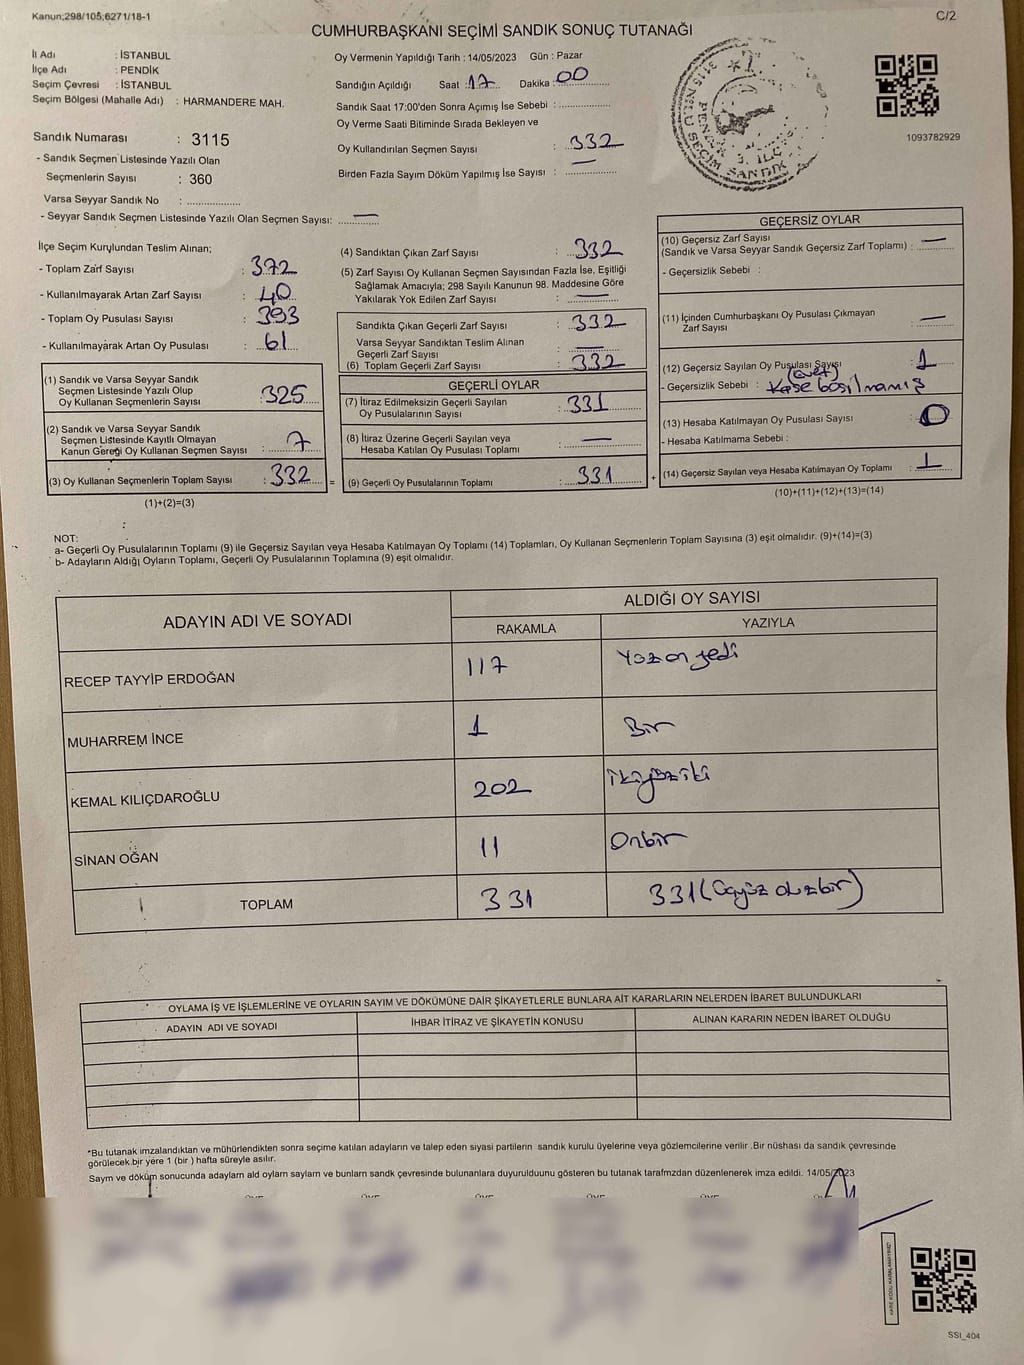 Kanun;298/105;6271/18-1
C/2
CUMHURBAŞKANI SEÇİMİ SANDIK SONUÇ TUTANAĞI
İl Adı : İSTANBUL
İlçe Adı : PENDİK
Seçim Çevresi : İSTANBUL
Seçim Bölgesi (Mahalle Adı) : HARMANDERE MAH.
Sandık Numarası : 3115
- Sandık Seçmen Listesinde Yazılı Olan
Seçmenlerin Sayısı : 360
Varsa Seyyar Sandık No :
- Seyyar Sandık Seçmen Listesinde Yazılı Olan Seçmen Sayısı: —
Oy Vermenin Yapıldığı Tarih : 14/05/2023 Gün : Pazar
Sandığın Açıldığı Saat : 17 Dakika : 00
Sandık Saat 17:00'den Sonra Açımış İse Sebebi :
Oy Verme Saati Bitiminde Sırada Bekleyen ve
Oy Kullandırılan Seçmen Sayısı : 332
Birden Fazla Sayım Döküm Yapılmış İse Sayısı : —
3115 NOLU SEÇİM SANDIK
PENDİK 3. İLÇE
1093782929
İlçe Seçim Kurulundan Teslim Alınan;
- Toplam Zarf Sayısı : 372
- Kullanılmayarak Artan Zarf Sayısı : 40
- Toplam Oy Pusulası Sayısı : 393
- Kullanılmayarak Artan Oy Pusulası : 61
(1) Sandık ve Varsa Seyyar Sandık
Seçmen Listesinde Yazılı Olup
Oy Kullanan Seçmenlerin Sayısı : 325
(2) Sandık ve Varsa Seyyar Sandık
Seçmen Listesinde Kayıtlı Olmayan
Kanun Gereği Oy Kullanan Seçmen Sayısı : 7
(3) Oy Kullanan Seçmenlerin Toplam Sayısı : 332
=
(1)+(2)=(3)
(4) Sandıktan Çıkan Zarf Sayısı : 332
(5) Zarf Sayısı Oy Kullanan Seçmen Sayısından Fazla İse, Eşitliği
Sağlamak Amacıyla; 298 Sayılı Kanunun 98. Maddesine Göre
Yakılarak Yok Edilen Zarf Sayısı : —
Sandıkta Çıkan Geçerli Zarf Sayısı : 332
Varsa Seyyar Sandıktan Teslim Alınan
Geçerli Zarf Sayısı : —
(6) Toplam Geçerli Zarf Sayısı : 332
GEÇERLİ OYLAR
(7) İtiraz Edilmeksizin Geçerli Sayılan
Oy Pusulalarının Sayısı : 331
(8) İtiraz Üzerine Geçerli Sayılan veya
Hesaba Katılan Oy Pusulası Toplamı : —
(9) Geçerli Oy Pusulalarının Toplamı : 331
+
GEÇERSİZ OYLAR
(10) Geçersiz Zarf Sayısı
(Sandık ve Varsa Seyyar Sandık Geçersiz Zarf Toplamı) : —
- Geçersizlik Sebebi :
(11) İçinden Cumhurbaşkanı Oy Pusulası Çıkmayan
Zarf Sayısı : —
(12) Geçersiz Sayılan Oy Pusulası Sayısı : 1
(evet)
- Geçersizlik Sebebi : Kaşe basılmamış
(13) Hesaba Katılmayan Oy Pusulası Sayısı : 0
- Hesaba Katılmama Sebebi :
(14) Geçersiz Sayılan veya Hesaba Katılmayan Oy Toplamı : 1
(10)+(11)+(12)+(13)=(14)
NOT:
a- Geçerli Oy Pusulalarının Toplamı (9) ile Geçersiz Sayılan veya Hesaba Katılmayan Oy Toplamı (14) Toplamları, Oy Kullanan Seçmenlerin Toplam Sayısına (3) eşit olmalıdır. (9)+(14)=(3)
b- Adayların Aldığı Oyların Toplamı, Geçerli Oy Pusulalarının Toplamına (9) eşit olmalıdır.
ADAYIN ADI VE SOYADI
ALDIĞI OY SAYISI
RAKAMLA YAZIYLA
RECEP TAYYİP ERDOĞAN 117 Yüz on yedi
MUHARREM İNCE 1 Bir
KEMAL KILIÇDAROĞLU 202 ikiyüziki
SİNAN OĞAN 11 Onbir
TOPLAM 331 331 (Üçyüz otuzbir)
OYLAMA İŞ VE İŞLEMLERİNE VE OYLARIN SAYIM VE DÖKÜMÜNE DAİR ŞİKAYETLERLE BUNLARA AİT KARARLARIN NELERDEN İBARET BULUNDUKLARI
ADAYIN ADI VE SOYADI
İHBAR İTİRAZ VE ŞİKAYETİN KONUSU
ALINAN KARARIN NEDEN İBARET OLDUĞU
*Bu tutanak imzalandıktan ve mühürlendikten sonra seçime katılan adayların ve talep eden siyasi partilerin sandık kurulu üyelerine veya gözlemcilerine verilir .Bir nüshası da sandık çevresinde
görülecek bir yere 1 (bir ) hafta süreyle asılır.
Saym ve döküm sonucunda adaylarn ald oylarn saylarn ve bunlarn sandk çevresinde bulunanlara duyurulduunu gösteren bu tutanak tarafmzdan düzenlenerek imza edildi. 14/05/2023
SSI_404